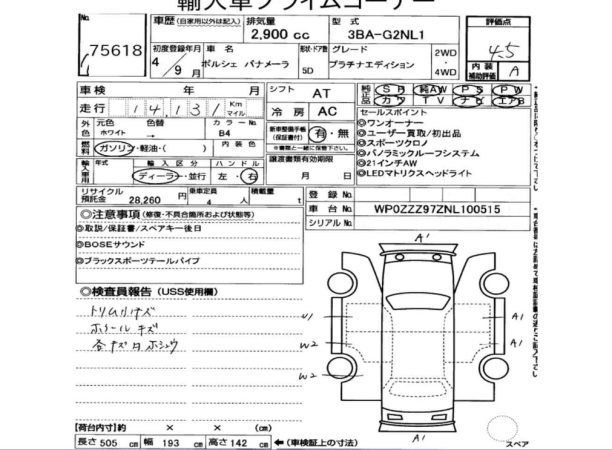 輸入車プライムコーナー
No.
75618
車歴 (自家用以外は記入)
排気量
2,900 cc
型式
3BA-G2NL1
評価点
4.5
初度登録年月
4 / 9 月
車名
ポルシェ パナメーラ
形状・ドア数
5D
グレード
プラチナエディション
2WD
・
4WD
内装
補助評価
A
車検 年 月
走行 14,131 Km マイル
シフト AT
冷房 AC
純正品 SR 純AW PS PW
カワ TV ナビ エアB
外色
元色 色替 カラーNo.
ホワイト → B4
燃料 ガソリン・軽油・( )
内装色
新車整備手帳
(保証書付) 有・無
※書類と一緒に保管下さい。
セールスポイント
◎ワンオーナー
◎ユーザー買取/初出品
◎スポーツクロノ
◎パノラミックルーフシステム
◎21インチAW
◎LEDマトリクスヘッドライト
輸入車用
年式 輸入区分 ハンドル
ディーラー・並行 左・右
譲渡書類有効期限
月 日
リサイクル
預託金 28,260 円
乗車定員
4 人
積載量
t
登録No.
車台No. WP0ZZZ97ZNL100515
シリアルNo.
◎注意事項 (修復・不具合箇所および状態等)
◎取説/保証書/スペアキー後日
◎BOSEサウンド
◎ブラックスポーツテールパイプ
◎検査員報告 (USS使用欄)
トリム小キズ
ホイールキズ
各キズ凹ホシュウ
A1
U1
A1
W2
A1
W2
A1
A1
スペア
【荷台内寸】約 × × (cm)
長さ 505 cm 幅 193 cm 高さ 142 cm ←(車検証上の寸法)